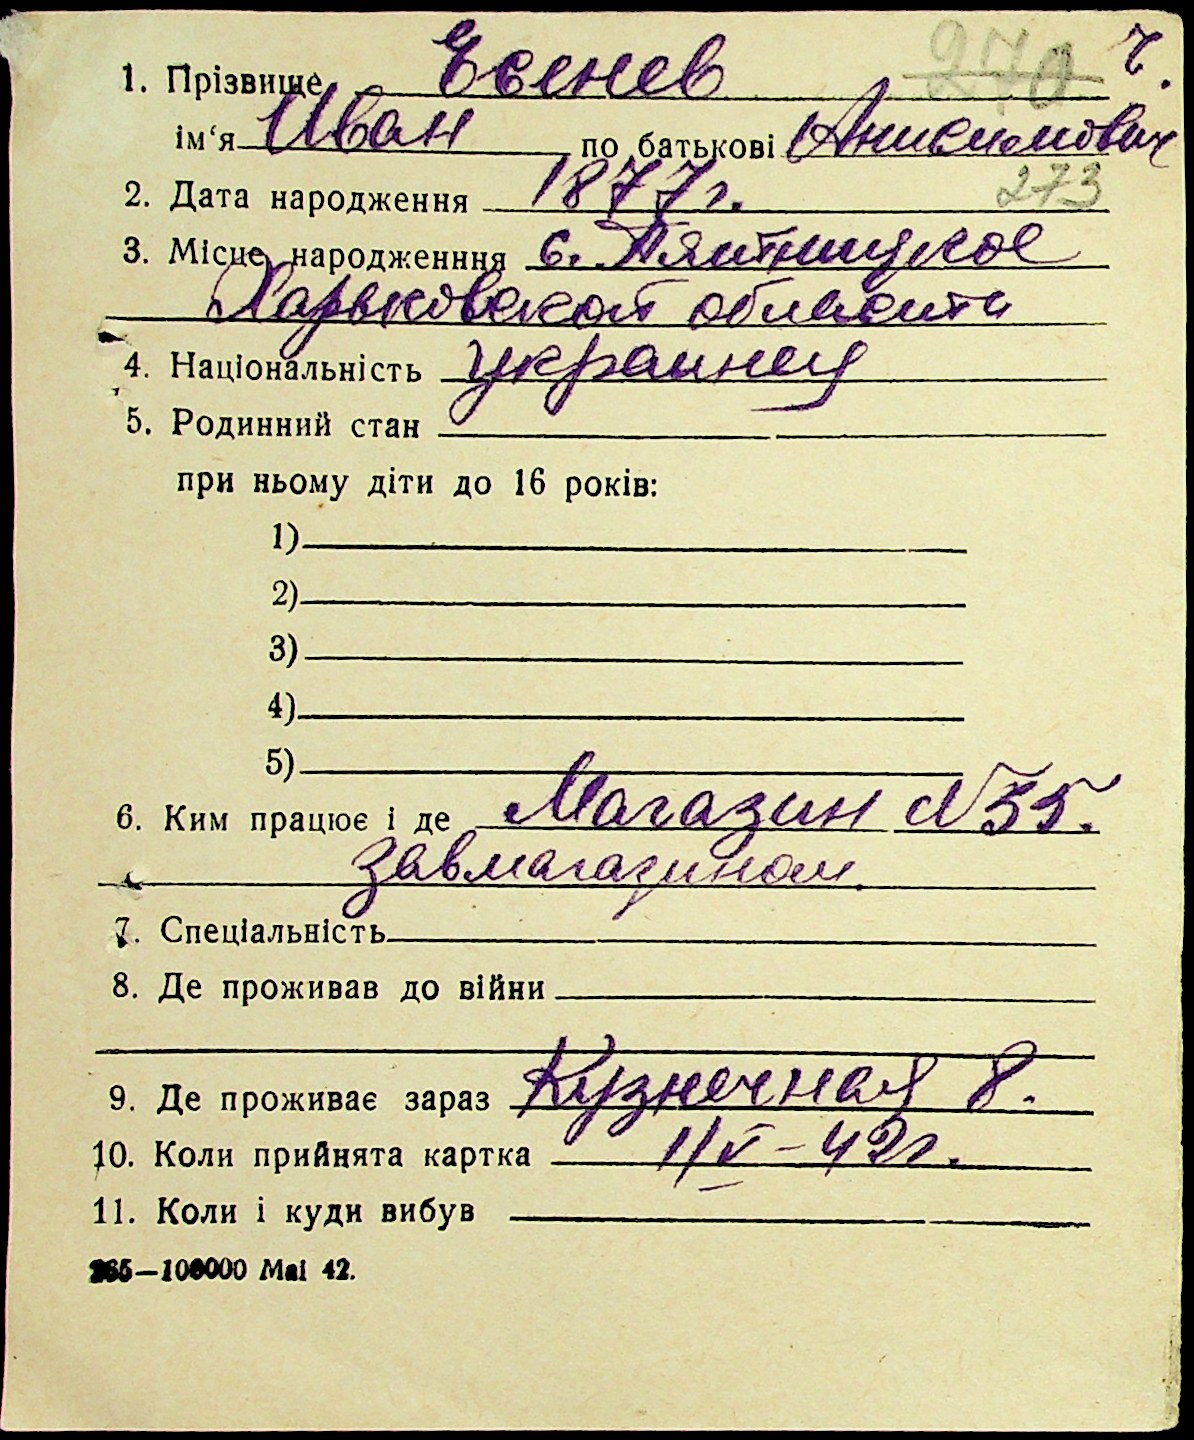 270 ч.
1. Прізвище Есенев
ім‘я Иван по батькові Анисимович
273
2. Дата народження 1877 г.
3. Місце народженння с. Пятницкое
Харьковской области
4. Національність украинец
5. Родинний стан
при ньому діти до 16 років:
1)
2)
3)
4)
5)
6. Ким працює і де Магазин №35.
завмагазином.
7. Спеціальність
8. Де проживав до війни
9. Де проживає зараз Кузнечная 8.
10. Коли прийнята картка 1/V-42г.
11. Коли і куди вибув
265—100000 Mai 42.